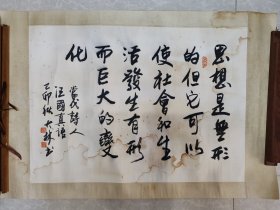 思想是無形
的但它可以
使社會和生
活發生有形
而巨大的變
化
當代詩人
汪國真語
己卯秋大林书